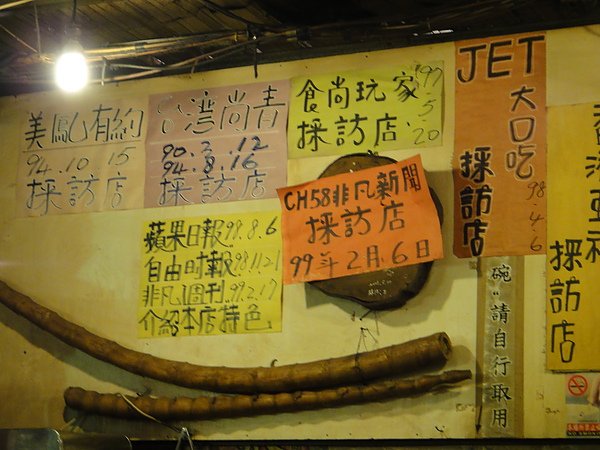 美鳳有約
94.10.15
採訪店
台灣尚青
90.2.12
94.8.16
採訪店
食尚玩家
採訪店
97.5.20
JET
大口吃
採訪店
98.4.6
蘋果日報98.8.6
自由時報98.11.21
非凡周刊99.2.17
介紹本店特色
CH58非凡新聞
採訪店
99年2月6日
碗..請自行取用
採訪店